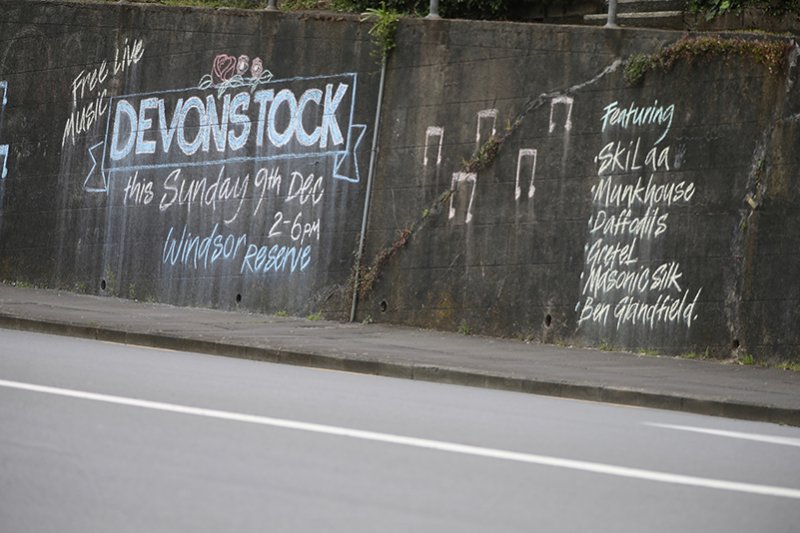 Free Live
Music
DEVONSTOCK
this Sunday 9th Dec
2-6pm
Windsor Reserve
Featuring
• SKiLaa
• Munkhouse
• Daffodils
• Gretel
• Masonic Silk
• Ben Glandfield.